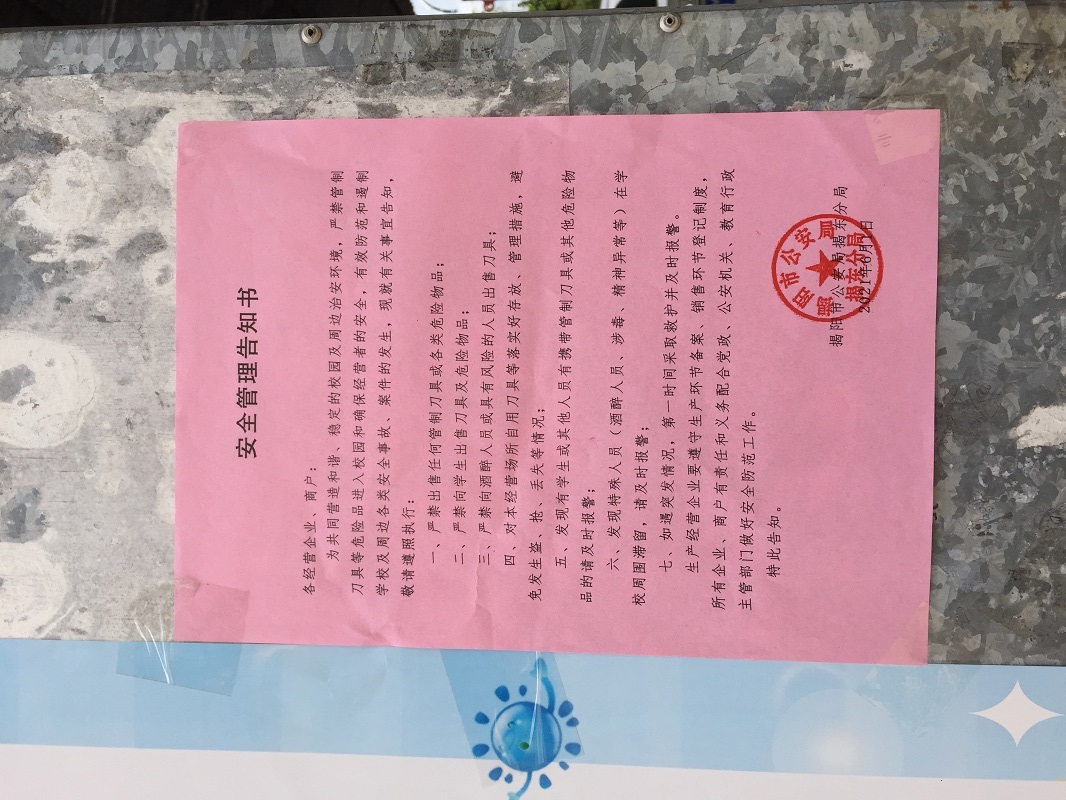 安全管理告知书
各经营企业、商户：
为共同营造和谐、稳定的校园及周边治安环境，严禁管制
刀具等危险品进入校园和确保经营者的安全，有效防范和遏制
学校及周边各类安全事故、案件的发生，现就有关事宜告知，
敬请遵照执行：
一、严禁出售任何管制刀具或各类危险物品；
二、严禁向学生出售刀具及危险物品；
三、严禁向酒醉人员或具有风险的人员出售刀具；
四、对本经营场所自用刀具等落实好存放、管理措施，避
免发生盗、抢、丢失等情况；
五、发现有学生或其他人员有携带管制刀具或其他危险物
品的请及时报警；
六、发现特殊人员（酒醉人员、涉毒、精神异常等）在学
校周围滞留，请及时报警；
七、如遇突发情况，第一时间采取救护并及时报警。
生产经营企业要遵守生产环节备案、销售环节登记制度，
所有企业、商户有责任和义务配合党政、公安机关、教育行政
主管部门做好安全防范工作。
特此告知。
揭阳市公安局揭东分局
2021年6月1日
揭阳市公安局
揭东分局